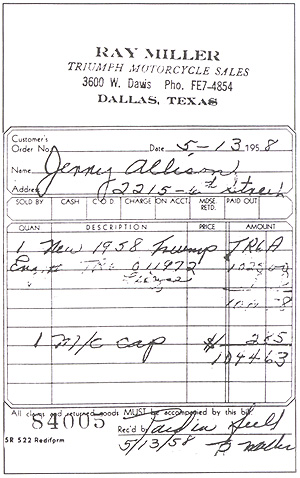 RAY MILLER
TRIUMPH MOTORCYCLE SALES
3600 W. Davis Pho. FE7-4854
DALLAS, TEXAS
Customer's
Order No. Date 5-13 1958
Name Jenny Allison
Address 2215-6th street
SOLD BY CASH C O D CHARGE ON ACCT. MDSE. RETD. PAID OUT
QUAN DESCRIPTION PRICE AMOUNT
1 New 1958 Triump TR6A
Eng #
1 M/C cap $1 265
104463
All claims and returned goods MUST be accompanied by this bill.
84005
Rec'd by Paid in full
5R 522 Rediform 5/13/58 B Miller